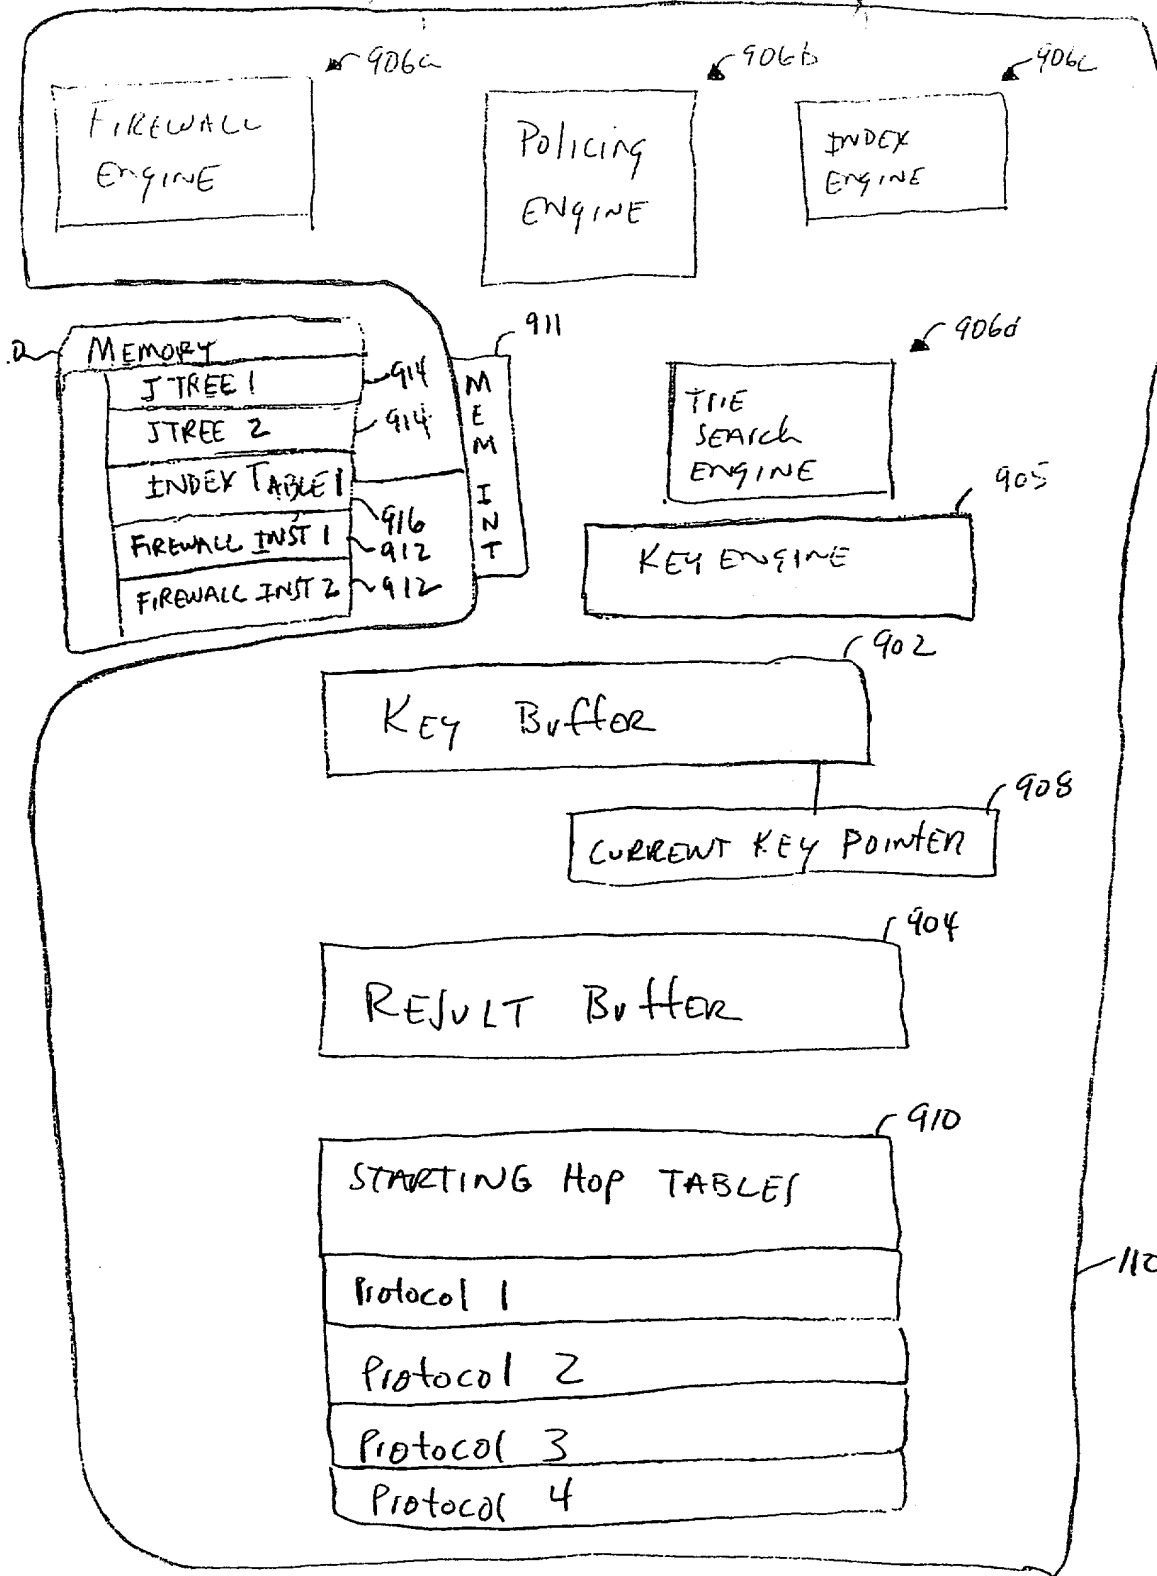 906a
906b
906c
FIREWALL
ENGINE
Policing
ENGINE
INDEX
ENGINE
911
906d
MEMORY
J TREE 1
914
JTREE 2
914
INDEX TABLE 1
916
FIREWALL INST 1
912
FIREWALL INST 2
912
MEM INT
SEARCH
ENGINE
905
KEY ENGINE
902
KEY Buffer
908
CURRENT KEY POINTER
904
RESULT Buffer
910
STARTING HOP TABLES
Protocol 1
Protocol 2
Protocol 3
Protocol 4